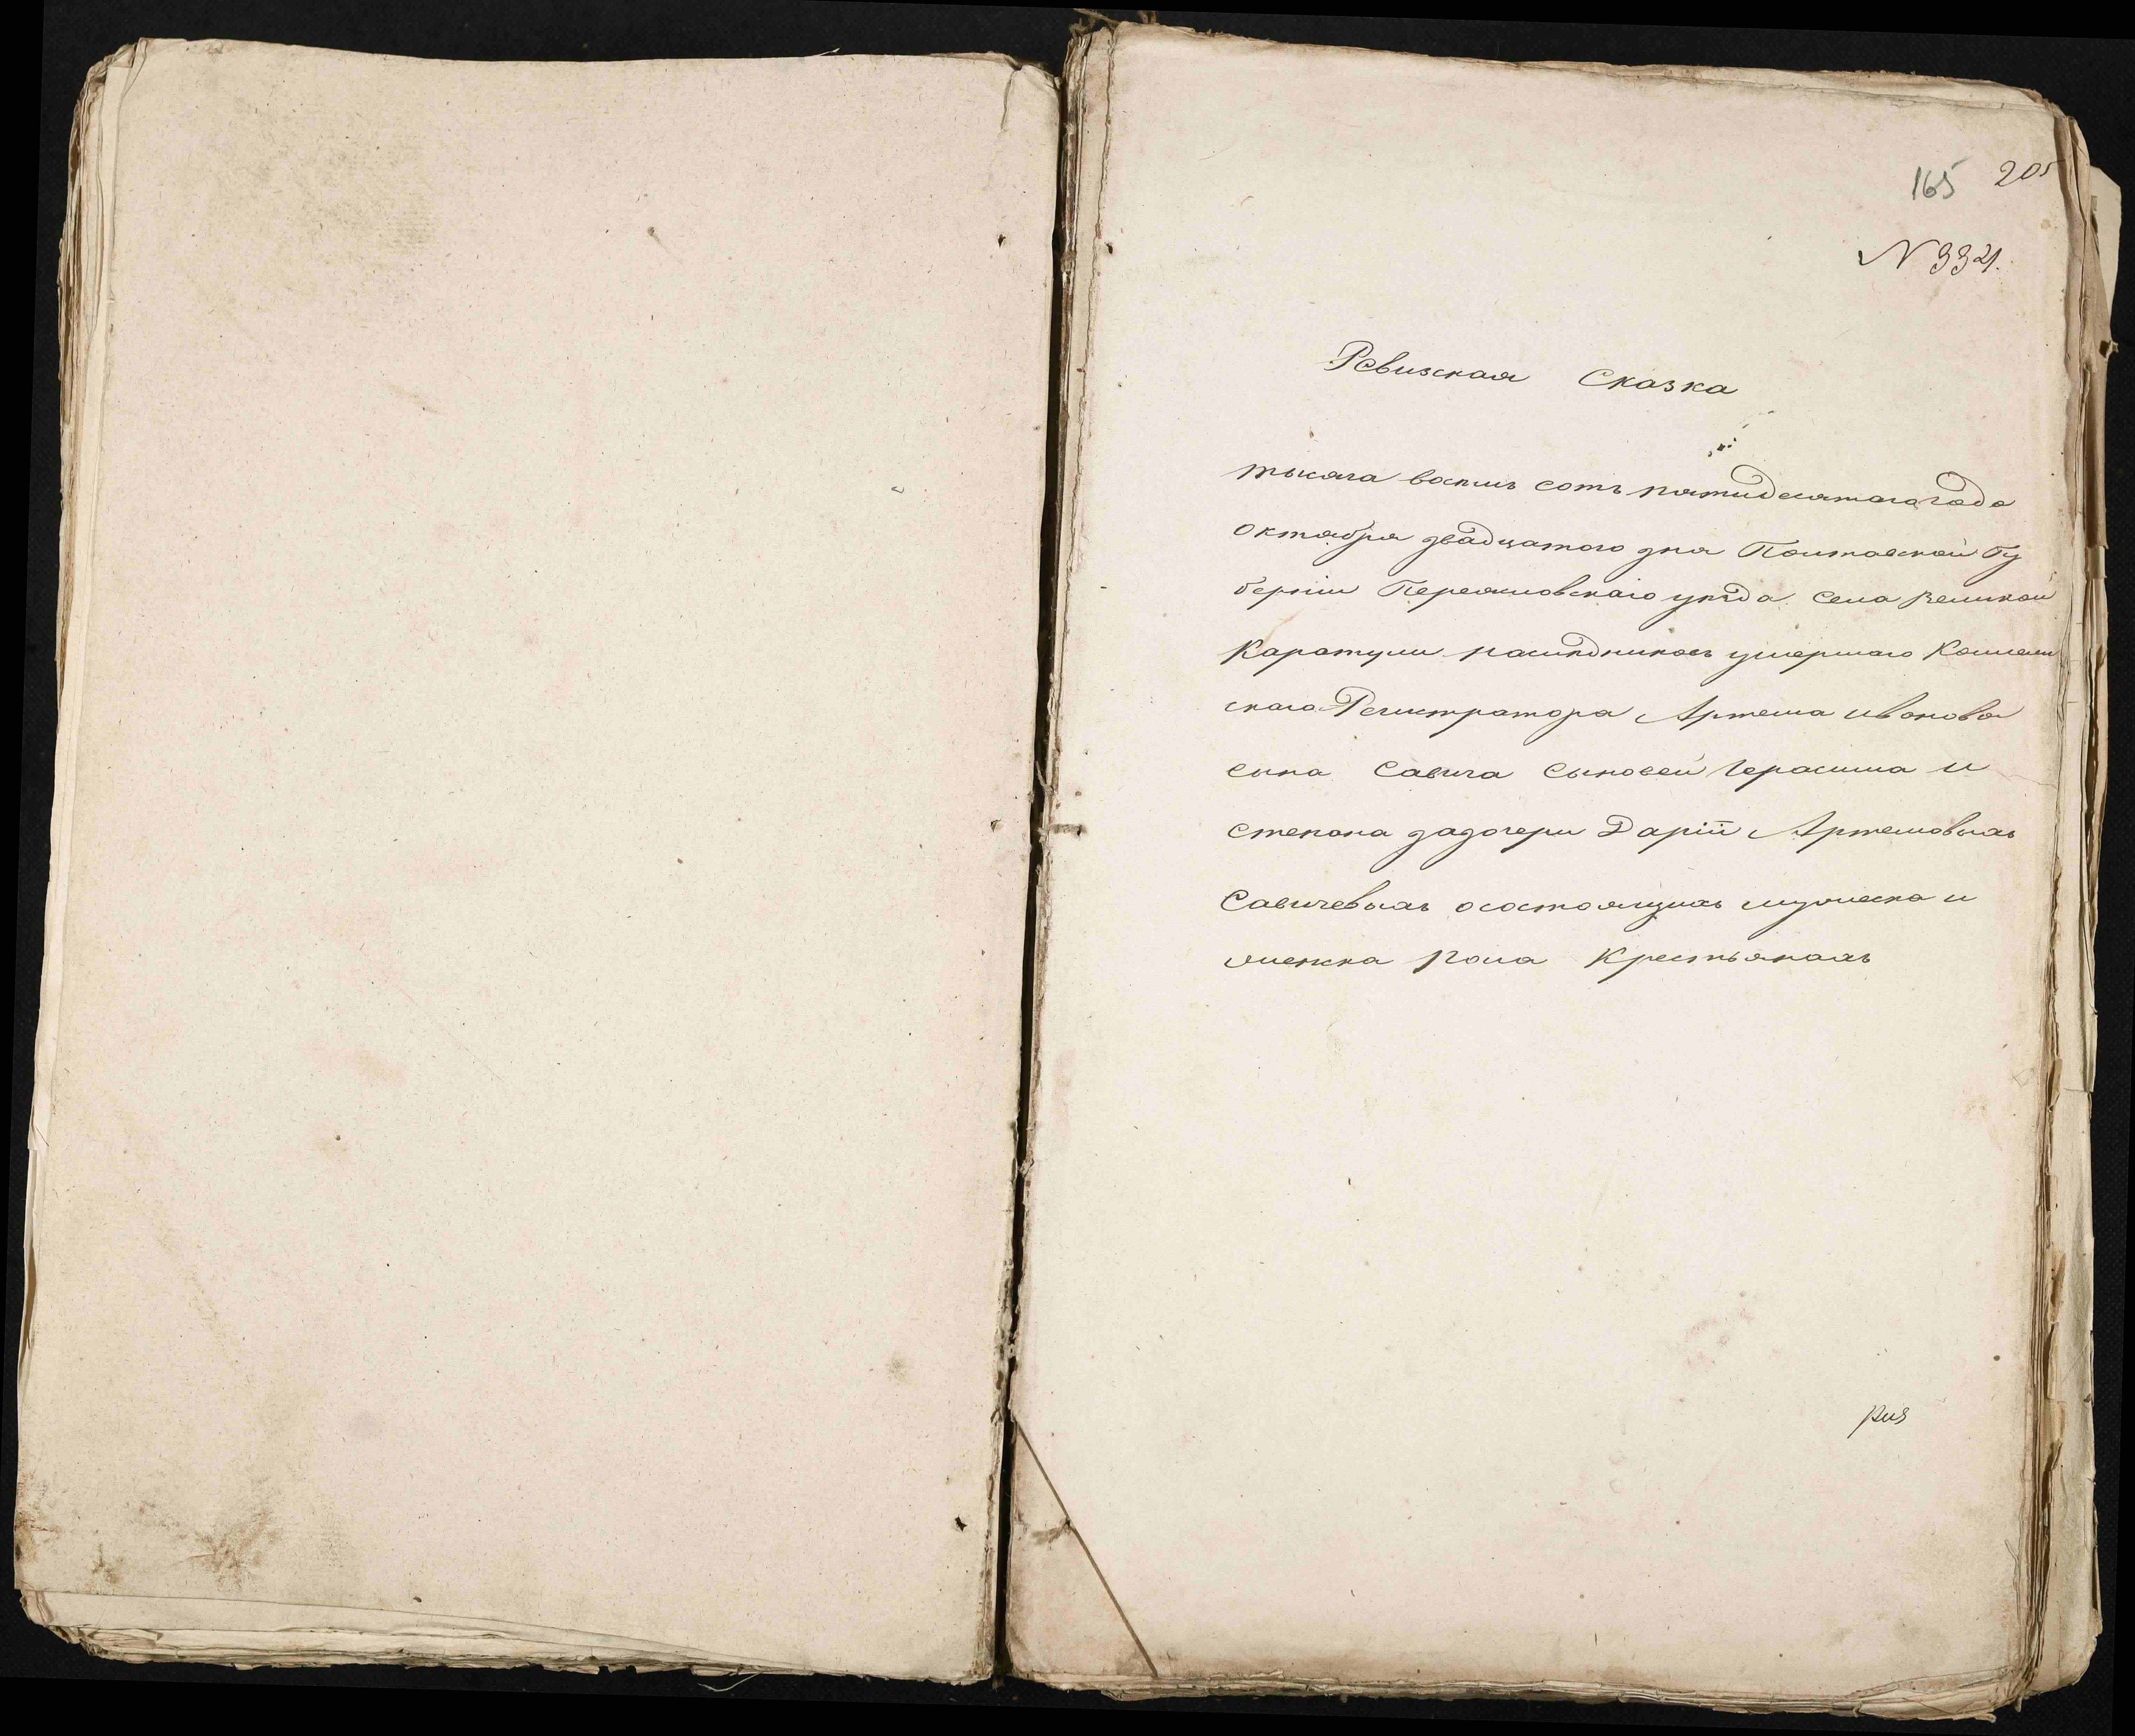 165 205
N 3321.
Ревизская Сказка
тысяча восимъ сотъ пятидесятага года
Октября двадцатого дня Полтавской Гу
берніи Переясловскаго уезда села Великой
Каратули наследниковъ умершаго Коллеж
скаго Регистратора Артема иванова
сына Савича сыновей Герасима и
Степана дадочери Даріи Артемовыхъ
Савичевыхъ осостоящихъ мужеска и
женска пола Крестьянахъ